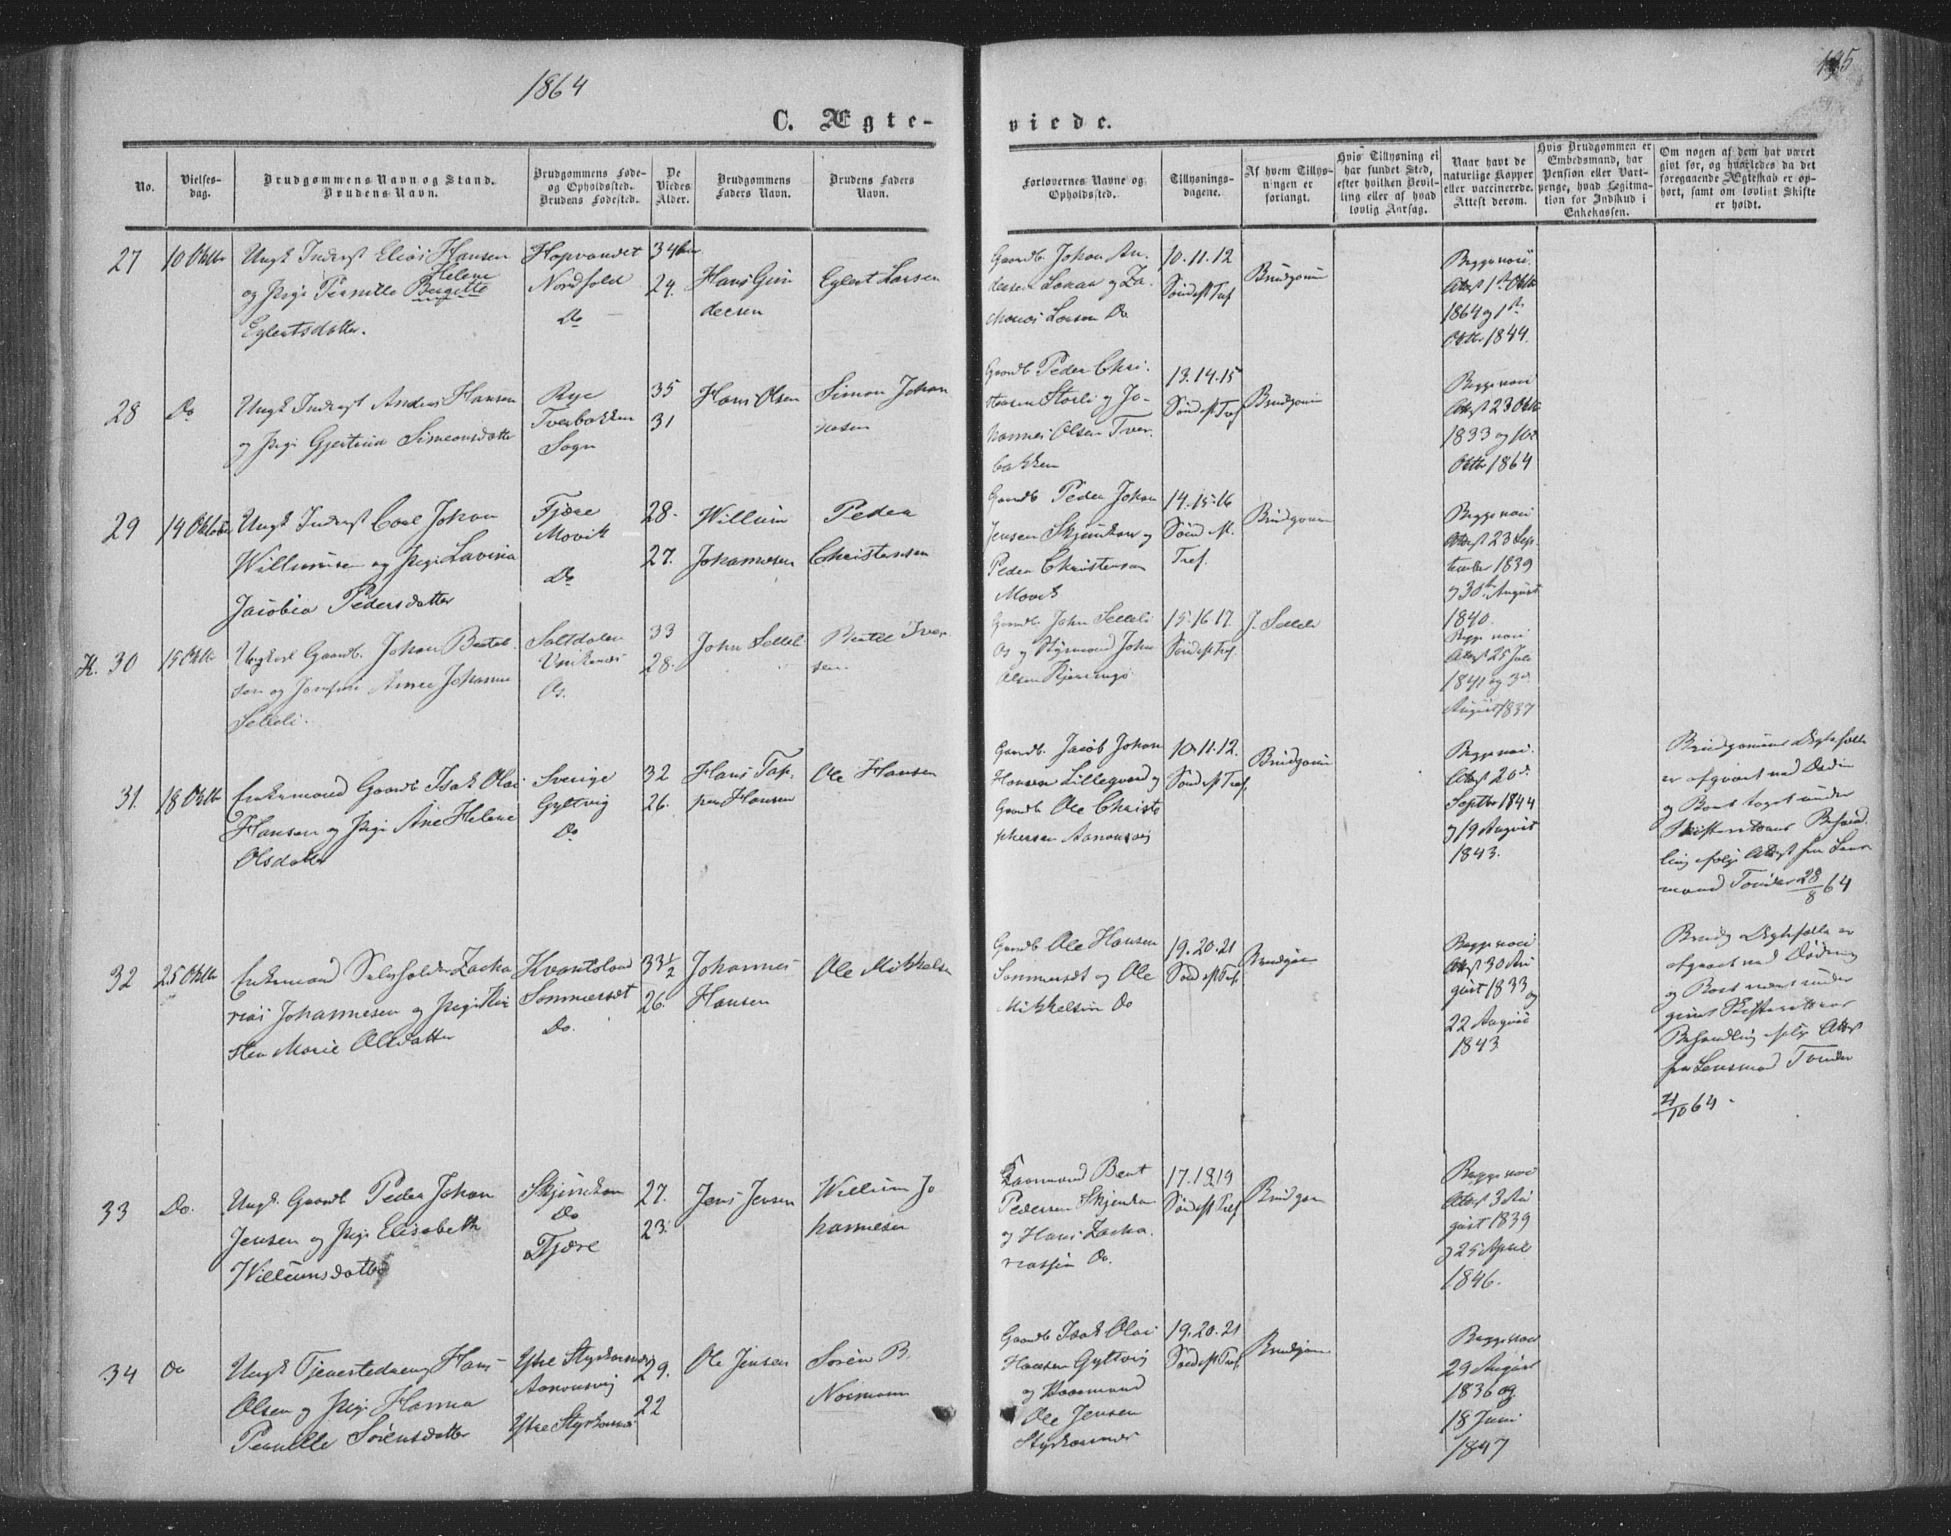 1864
195
C. Ægte-
viede.
No.
Vielses-
dag.
Brudgommens Navn og Stand.
Brudens Navn.
Brudgommens Føde-
og Opholdssted.
Brudens Fødested.
De
Viedes
Alder.
Brudgommens
Faders Navn.
Brudens Faders
Navn.
Forlovernes Navne og
Opholdssted.
Tillysnings-
dagene.
Af hvem Tillys-
ningen er
forlangt.
Hvis Tillysning ei
har fundet Sted,
efter hvilken Bevil-
ling eller af hvad
lovlig Aarsag.
Naar havt de
naturlige Kopper
eller vaccinerede.
Attest derom.
Hvis Brudgommen er
Embedsmand, har
Pension eller Vart-
penge, hvad Legitima-
tion for Indskud i
Enkekassen.
Om nogen af dem har været
givt før, og hvorledes da det
foregaaende Ægteskab er op-
hørt, samt om lovligt Skifte
er holdt.
27 10 Oktbr
Ungk Inderst Elias Hansen
Helene
og Pige Pernille Bergitte
Eglertsdatter.
Hopvandet
Nordfold
Do
34
24.
Hans Gun
dersen
Eglert Larsen
Gaardb. Johan An.
dersen Lakaa og Za
charias Larsen Do
10.11.12
Sønd eft Tref
Brudgom
Begge vacc.
Attest 1ste Oktbr
1864 og 1ste
Oktbr 1844.
28 Do
Ungk Inderst Anders Hansen
og Pige Gjertrud Simeonsdatter
Rye
Tverbakken
Sogn
35
31
Hans Olsen
Simon Johan
nesen
Gaardb Peder Chri.
stensen Storli og Jo-
hannes Olsen Tver.
bakken
13.14.15
Sønd eft Tref
Brudgom
Begge vacc
Attest 23 Oktbr
1833 og
Oktbr 1864
29 14 Oktober
Ungk Inderst Carl Johan
Willumsen og Pige Lavina
Jacobia Pedersdatter
Fjære
Movik
Do
28.
27.
Willum
Johannesen
Peder
Christensen
Gaardb Peder Johan
Jensen Skjunkan og
Peder Christensen
Movik
14.15.16
Sønd eft.
Tref.
Brudgom
Begge vacc
Attest 23 Sep.
tember 1839
og 30te August
1840.
K. 30 15 Oktbr
Ungkarl Gaardb. Johan Bertel
sen og Jomfru Anne Johanne
Selleli.
Saltdalen
Os.
33
28.
John Selleli
Bertel Iver
sen
Gaardb. John Selleli
Os og Styrmand John
Olsen Kjerringø
15.16.17
Sønd eft Tref.
J. Selleli
Begge vacc
Attest 25 Juli
1841 og 3die
August 1837
31. 18 Oktbr
Enkemand Gaardb Isak Olai
Hansen og Pige Ane Helene
Olsdatter
Sverige
Gyltvig
Do
32
26.
Hans Jas.
per Hansen
Ole Hansen
Gaardb. Jacob Johan
Hansen Lillegaard og
Gaardb Ole Christo
phersen Asnansvig
10.11.12.
Sønd eft Tref.
Brudgom
Begge vacc.
Attest 20de
Septbr 1844
og 19 August
1843.
Brudgomens Ægtefælle
er afgaaet ved Døden
og Boet taget under
Skifterettens Behand.
ling ifølge Attest fra Lens
mand Tonder 28/8 64
32 25 Oktbr
Enkemand Selvsholder Zacha
rias Johannesen og Pige Kir
sten Marie Olsdatter
Kvantoland
Sommerset
Do.
33½
26.
Johannes
Hansen
Ole Mikkelsen
Gaardb Ole Hansen
Sommerset og Ole
Mikkelsen Do
19.20.21
Sønd eft Tref.
Brudgom
Begge vacc
Attest 30 Au
gust 1833 og
22 August
1843
Brudg Ægtefælle er
afgaaet ved Døden
og Boet under
Skifterettens
Behandling ifølge Attest
fra Lensmand Tonder
21/10 64.
33 Do.
Ungk. Gaardb Peder Johan
Jensen og Pige Elisabeth
Willumsdatter
Skjunkan
Do
Fjære
27.
23.
Jens Jensen
Willum Jo
hannesen
Baarmand Bent
Pedersen Skjunkan
og Hans Zacha.
riassen Do.
17.18.19
Sønd eft Tref.
Brudgom
Begge vacc
Attest 3 Au
gust 1839
og 25 April
1846.
34 Do
Ungk Tjenestedreng Hans
Olsen og Pige Hanna
Pernille Sørensdatter
Ytre Styrkesnæs
Asnansvig
Ytre Styrkesnæs
29.
22
Ole Jensen
Søren B.
Normann
Gaardb Isak Olai
Hansen Gyltvig
og Baarmand
Ole Jensen
Styrkesnæs
19.20.21
Sønd eft Tref.
Brudgom
Begge vacc
29 August
1836 og
18 Juni
1847